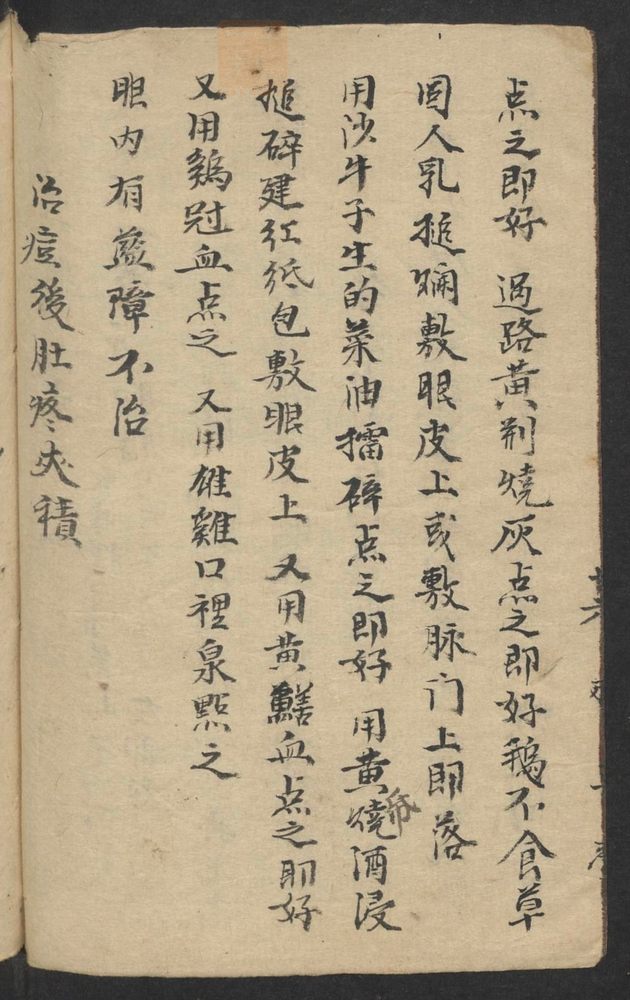 点之即好 過路黃荆燒灰点之即好鵝不食草
因人乳搥爛敷眼皮上或敷脉门上即落
用沙牛子生的菜油擂碎点之即好 用黄紙燒酒浸
搥碎建红纸包敷眼皮上 又用黄鱔血点之即好
又用鷄冠血点之 又用雄雞口裡泉點之
眼内有蓝障不治
治痘後肚疼夾積